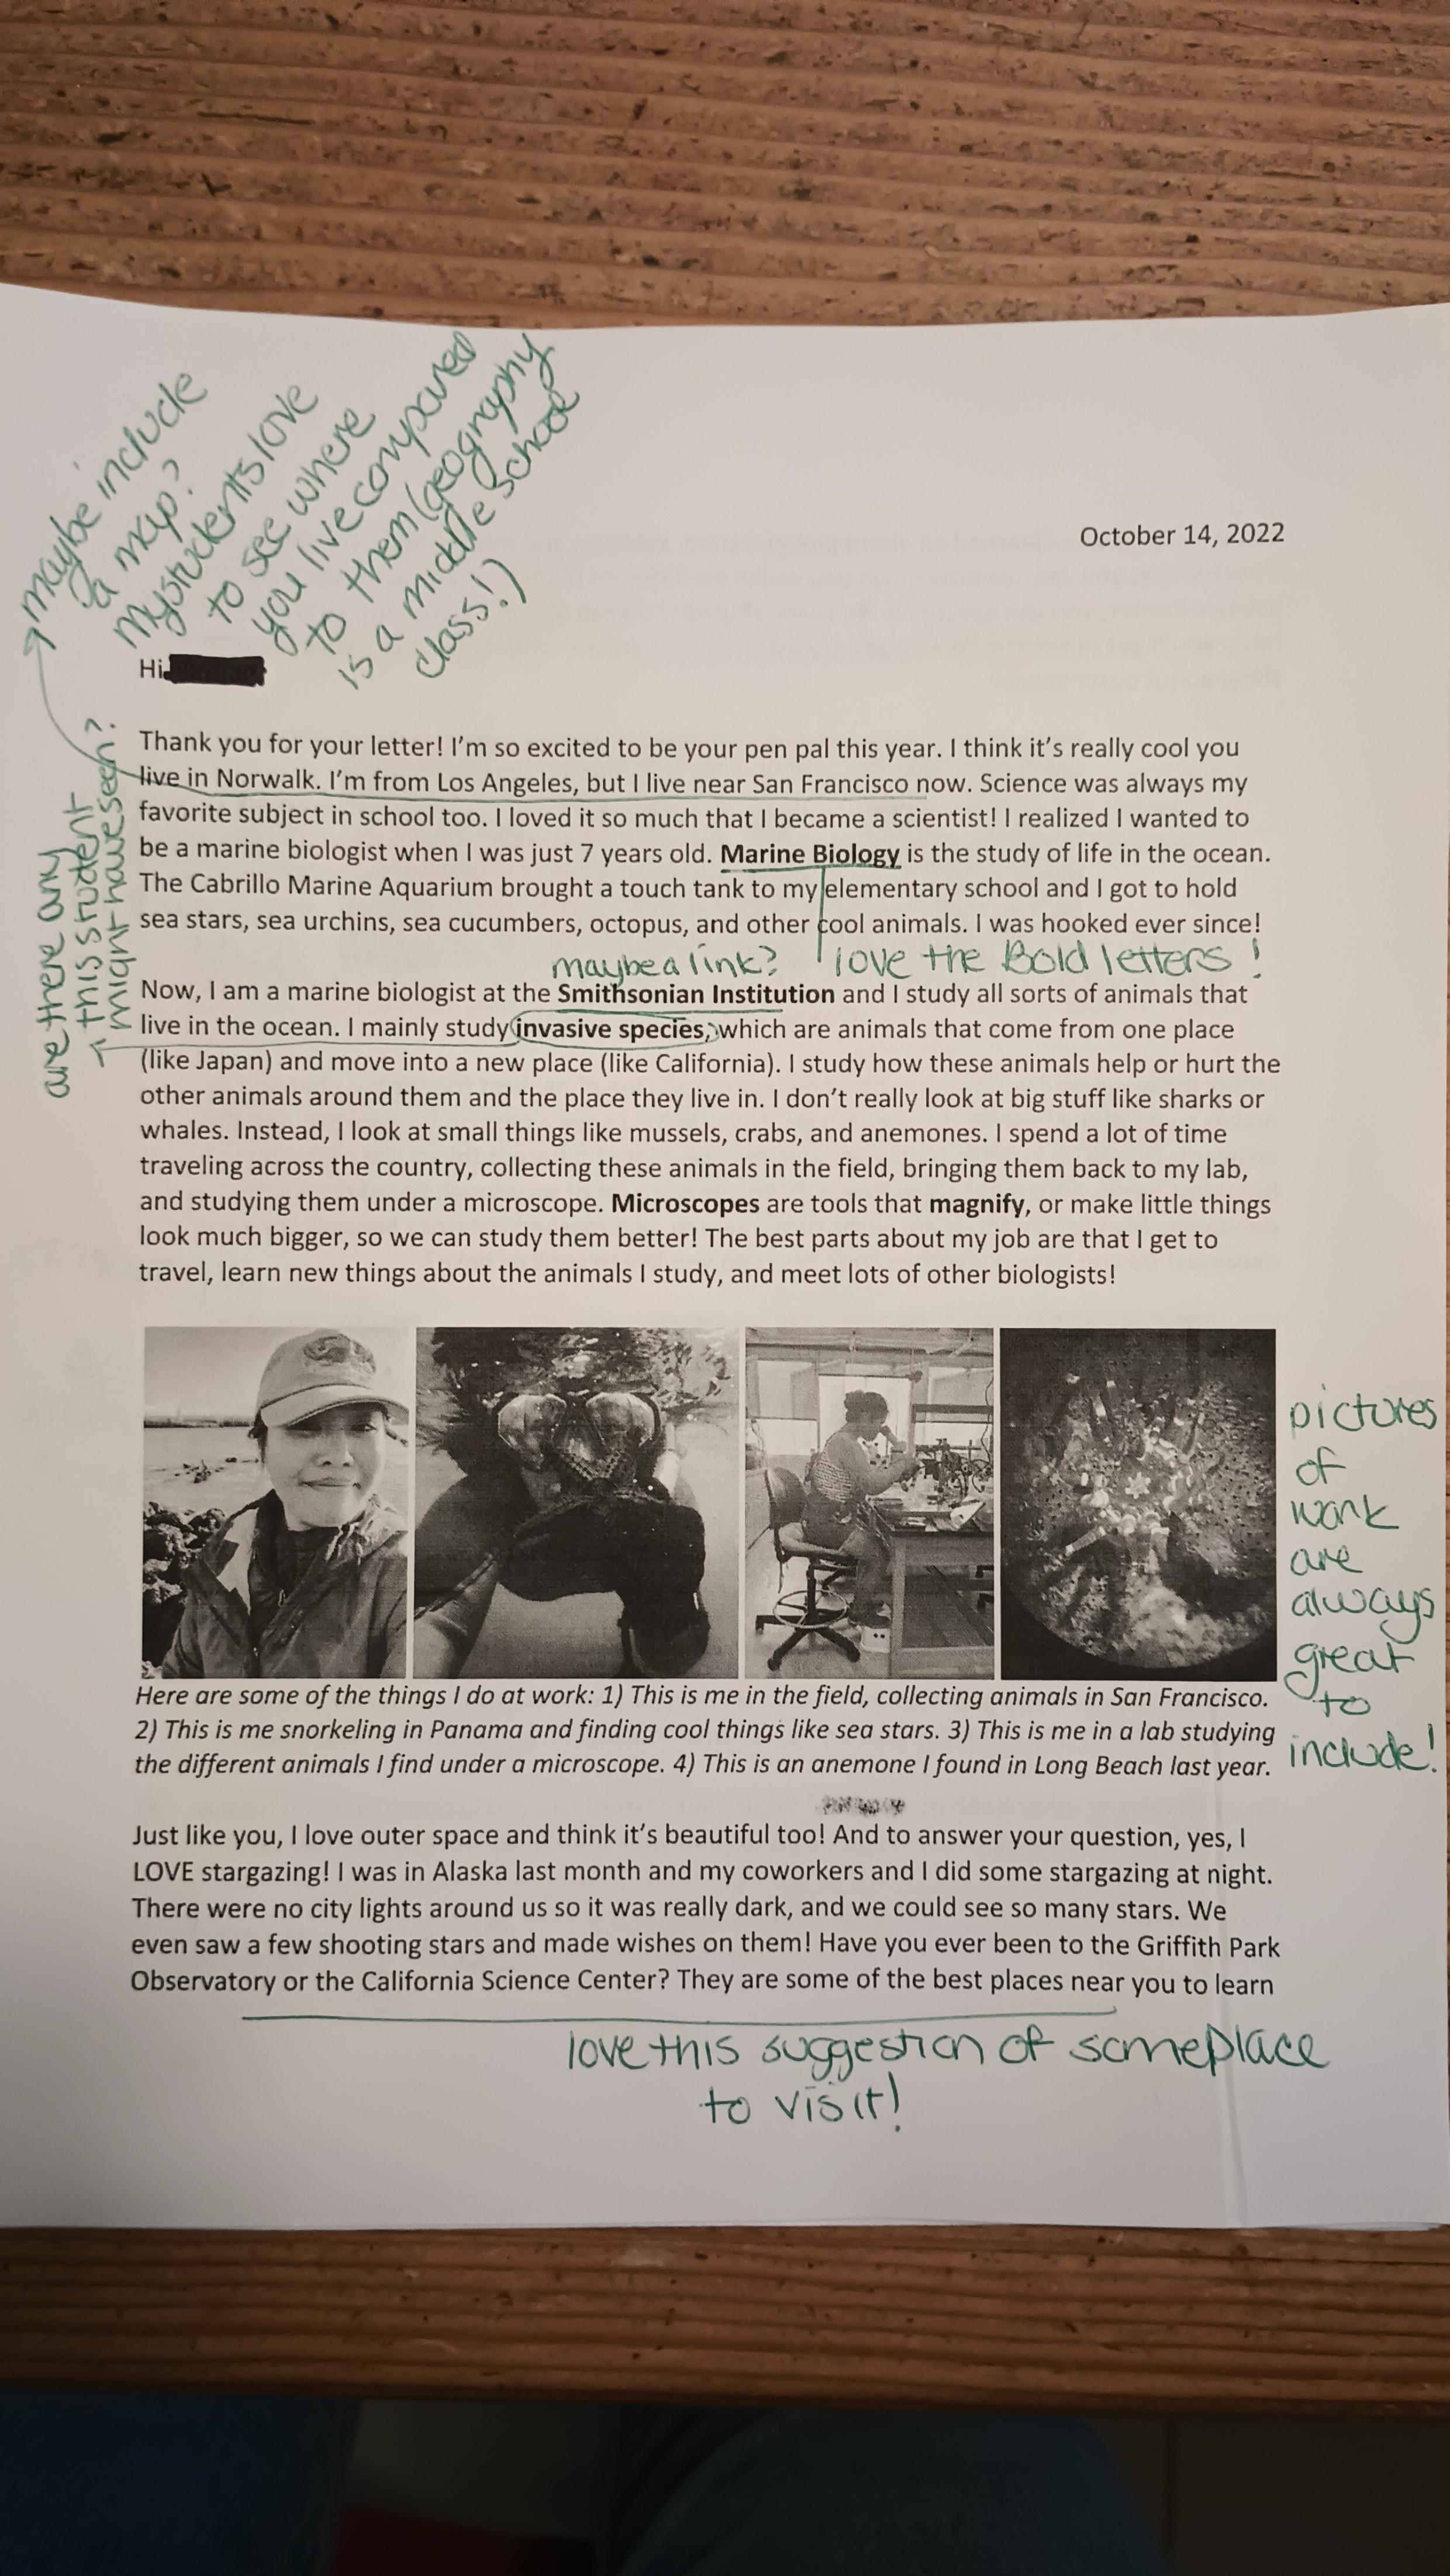 maybe include
a map?
my students love
to see where
you live compared
to them (geography
is a middle school
class!)
October 14, 2022
Hi
Thank you for your letter! I'm so excited to be your pen pal this year. I think it's really cool you
live in Norwalk. I'm from Los Angeles, but I live near San Francisco now. Science was always my
favorite subject in school too. I loved it so much that I became a scientist! I realized I wanted to
be a marine biologist when I was just 7 years old. Marine Biology is the study of life in the ocean.
The Cabrillo Marine Aquarium brought a touch tank to my elementary school and I got to hold
sea stars, sea urchins, sea cucumbers, octopus, and other cool animals. I was hooked ever since!
maybe a link? love the Bold letters!
are there any
this student
might have seen?
Now, I am a marine biologist at the Smithsonian Institution and I study all sorts of animals that
live in the ocean. I mainly study invasive species, which are animals that come from one place
(like Japan) and move into a new place (like California). I study how these animals help or hurt the
other animals around them and the place they live in. I don't really look at big stuff like sharks or
whales. Instead, I look at small things like mussels, crabs, and anemones. I spend a lot of time
traveling across the country, collecting these animals in the field, bringing them back to my lab,
and studying them under a microscope. Microscopes are tools that magnify, or make little things
look much bigger, so we can study them better! The best parts about my job are that I get to
travel, learn new things about the animals I study, and meet lots of other biologists!
pictures
of
work
are
always
great
to
include!
Here are some of the things I do at work: 1) This is me in the field, collecting animals in San Francisco.
2) This is me snorkeling in Panama and finding cool things like sea stars. 3) This is me in a lab studying
the different animals I find under a microscope. 4) This is an anemone I found in Long Beach last year.
Just like you, I love outer space and think it's beautiful too! And to answer your question, yes, I
LOVE stargazing! I was in Alaska last month and my coworkers and I did some stargazing at night.
There were no city lights around us so it was really dark, and we could see so many stars. We
even saw a few shooting stars and made wishes on them! Have you ever been to the Griffith Park
Observatory or the California Science Center? They are some of the best places near you to learn
love this suggestion of someplace
to visit!